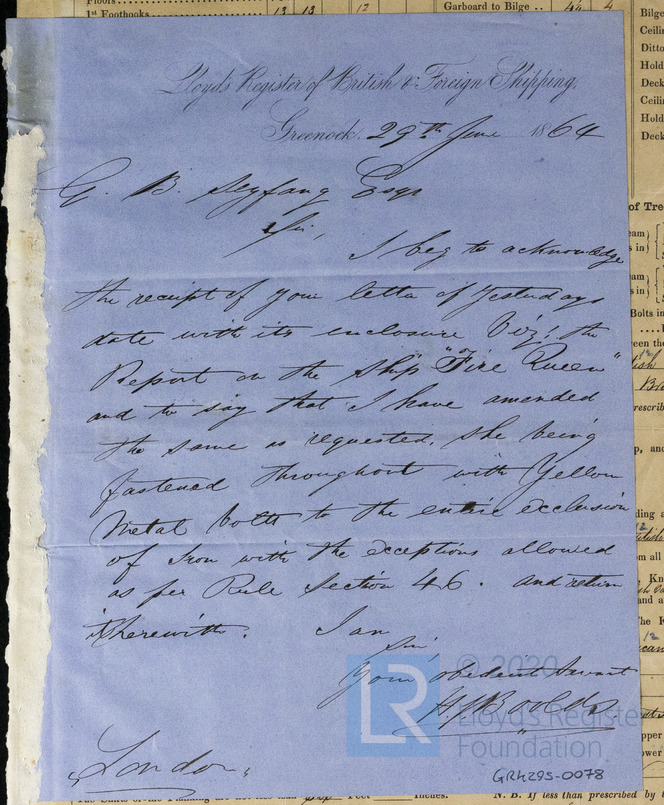 Floors
1st Foothooks 13 13 12
Garboard to Bilge .. 44 4
Bilge
Ceilin
Ditto
Hold
Deck
Ceilin
Hold
Deck
Lloyd's Register of British & Foreign Shipping.
Greenock. 29th June 1864
G. B. Seyfang Esqr
Sir,
I beg to acknowledge
the receipt of your letter of Yesterdays
date with its enclosure Vizt. the
Report on the Ship "Fire Queen"
and to say that I have amended
the same as requested, she being
fastened throughout with Yellow
Metal bolts to the entire exclusion
of Iron with the exceptions allowed
as per Rule Section 46. and return
it herewith.
I am
Sir,
Your obedient Servant
H. J. Boolds
London,
of Tre
eam
s in
eam
s in
Bolts in
© 2020
LR
Lloyd's Register
Foundation
GRK295-0078
Feet Inches.
N. B. If less than prescribed by